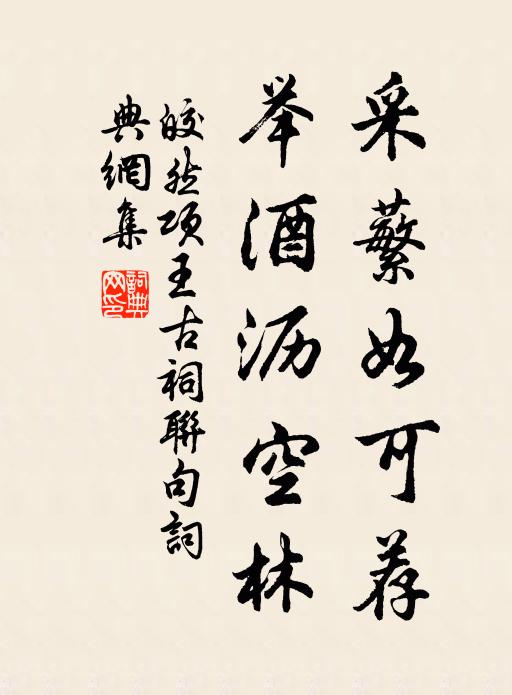 采蘩如可荐
举酒沥空林
皎然项王古祠聯句詞
典網集
詞典網印